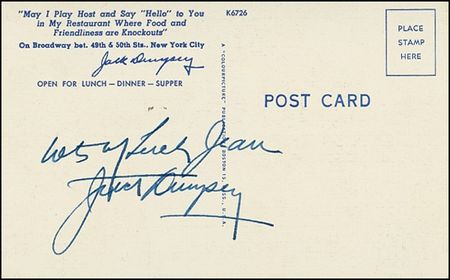 "May I Play Host and Say "Hello" to You
in My Restaurant Where Food and
Friendliness are Knockouts"
On Broadway bet. 49th & 50th Sts., New York City
Jack Dempsey
OPEN FOR LUNCH — DINNER — SUPPER
K6726
PLACE
STAMP
HERE
A "COLORPICTURE" PUBLICATION BOSTON 15, MASS., U.S.A.
POST CARD
Lots of Luck, Jean
Jack Dempsey